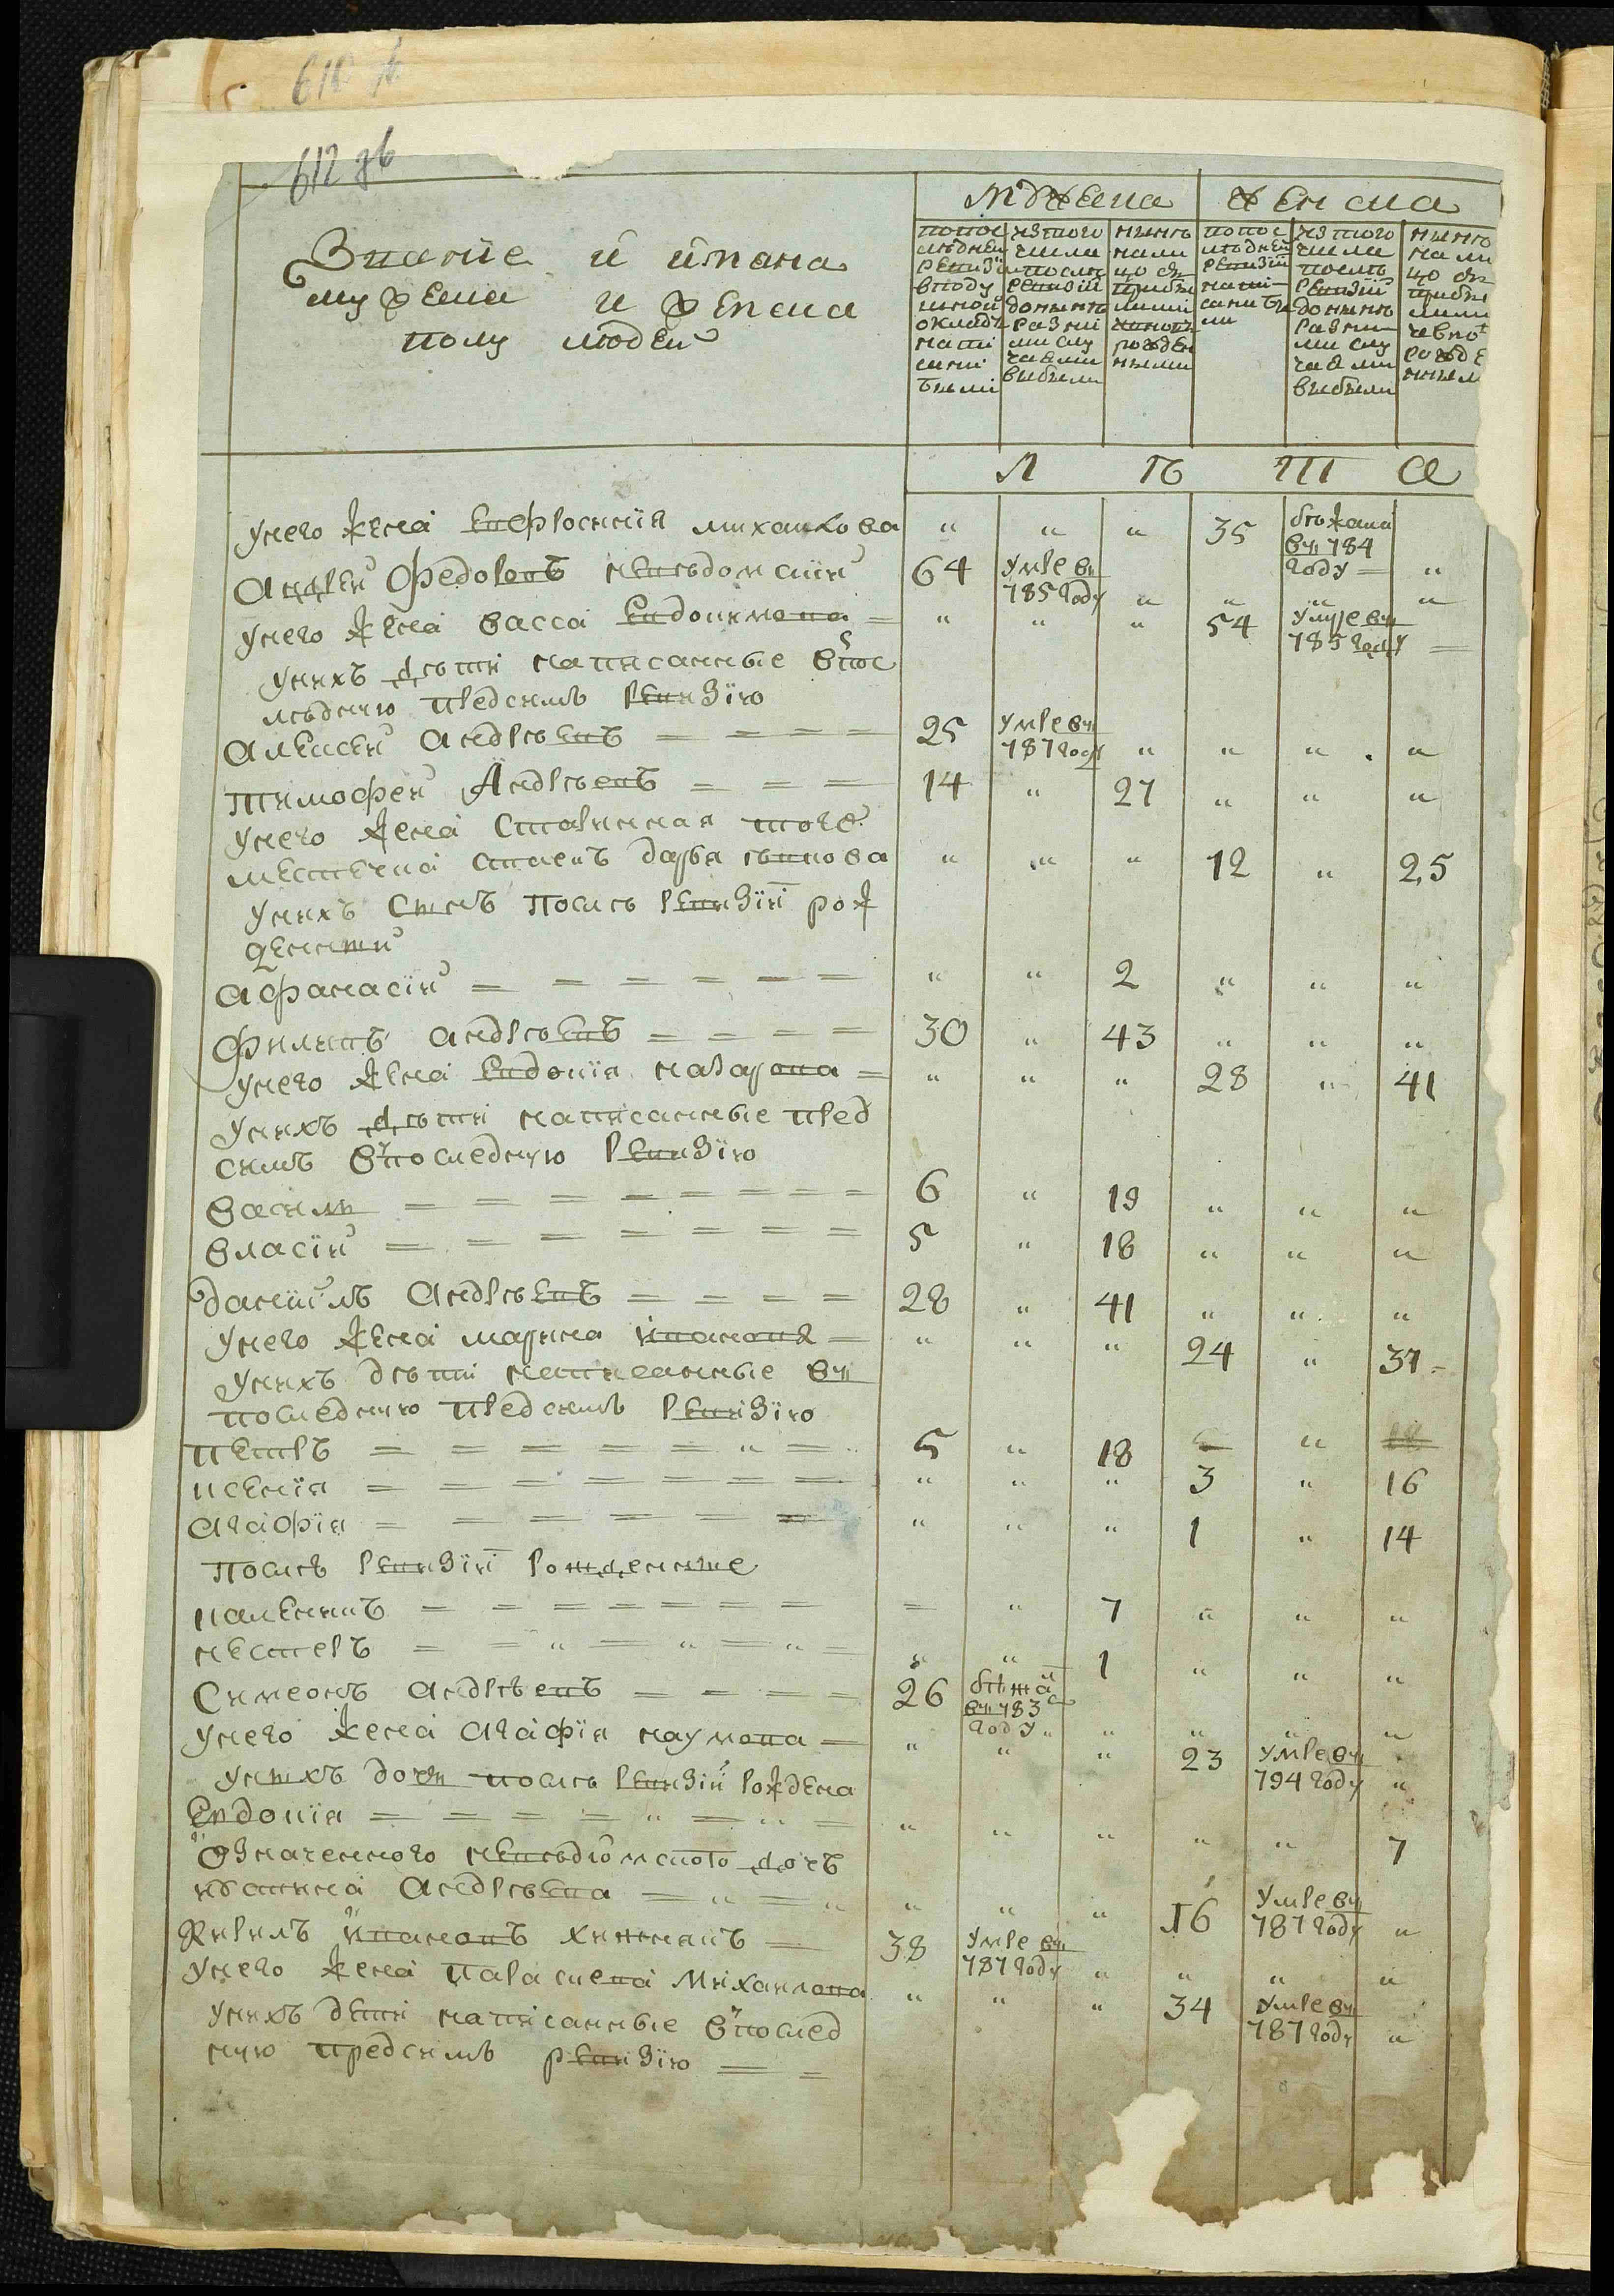 612 дв
Звание и имяна
мужеска и женска
полу людей
мужеска
женска
по последней ревизии в подушной оклад написанныи
из того числа после ревизии до ныне разними случаями выбыли
ныне на лицо
по последней ревизии написаны были
из того числа после ревизии до ныне разними случаями выбыли
ныне на лицо
Л Ѣ Т А
у него жена Евфросиния михайлова " " " 35 бежала
в ч 784
году "
Андрей Федоровъ невѣдомский 64 умре вч
785 году " " " "
у него жена васса Евдокимова " " " 54 умре вч
785 году
у нихъ дѣти написанные в пос
лѣднюю пред симъ ревизию
алексей андрѣевъ 25 умре вч
787 году " " " "
тимофей Андрѣевъ 14 " 27 " " "
у него жена Старинная тоже
местечка дарья " " " 12 " 25
у нихъ Сынъ послѣ ревизии рож
денный
афанасий " " 2 " " "
филипъ андрѣевъ 30 " 43 " " "
у него жена Евдокия назарова " " " 28 " 41
у нихъ дѣти написанные пред
симъ в последнюю ревизию
васили 6 " 19 " " "
власий 5 " 18 " " "
даниилъ Андрѣевъ 28 " 41 " " "
у него жена марина иванова " " " 24 " 37
у нихъ дѣти написанные вч
последнюю пред симъ ревизию
петръ 5 " 18 "
ксения " " " 3 " 16
агафия " " " 1 " 14
послѣ ревизии рожденные
каленикъ " 7 " " "
нестеръ " " 1 " " "
Симеонъ андрѣевъ 26 бежа
вч 783
году " " " " "
у него жена агафия наумова " " " 23 умре вч
794 году "
у них дочь послѣ ревизии рождена
Евдокия " " " " " 7
означенного невѣдомского дочь
андрѣева " " " 16 умре вч
787 году "
кирилъ ивановъ 38 умре вч
787 году " " " "
у него жена параскева михаилова " " " 34 умре вч
787 году "
у нихъ дети написанные в послед
нюю предсимъ ревизию